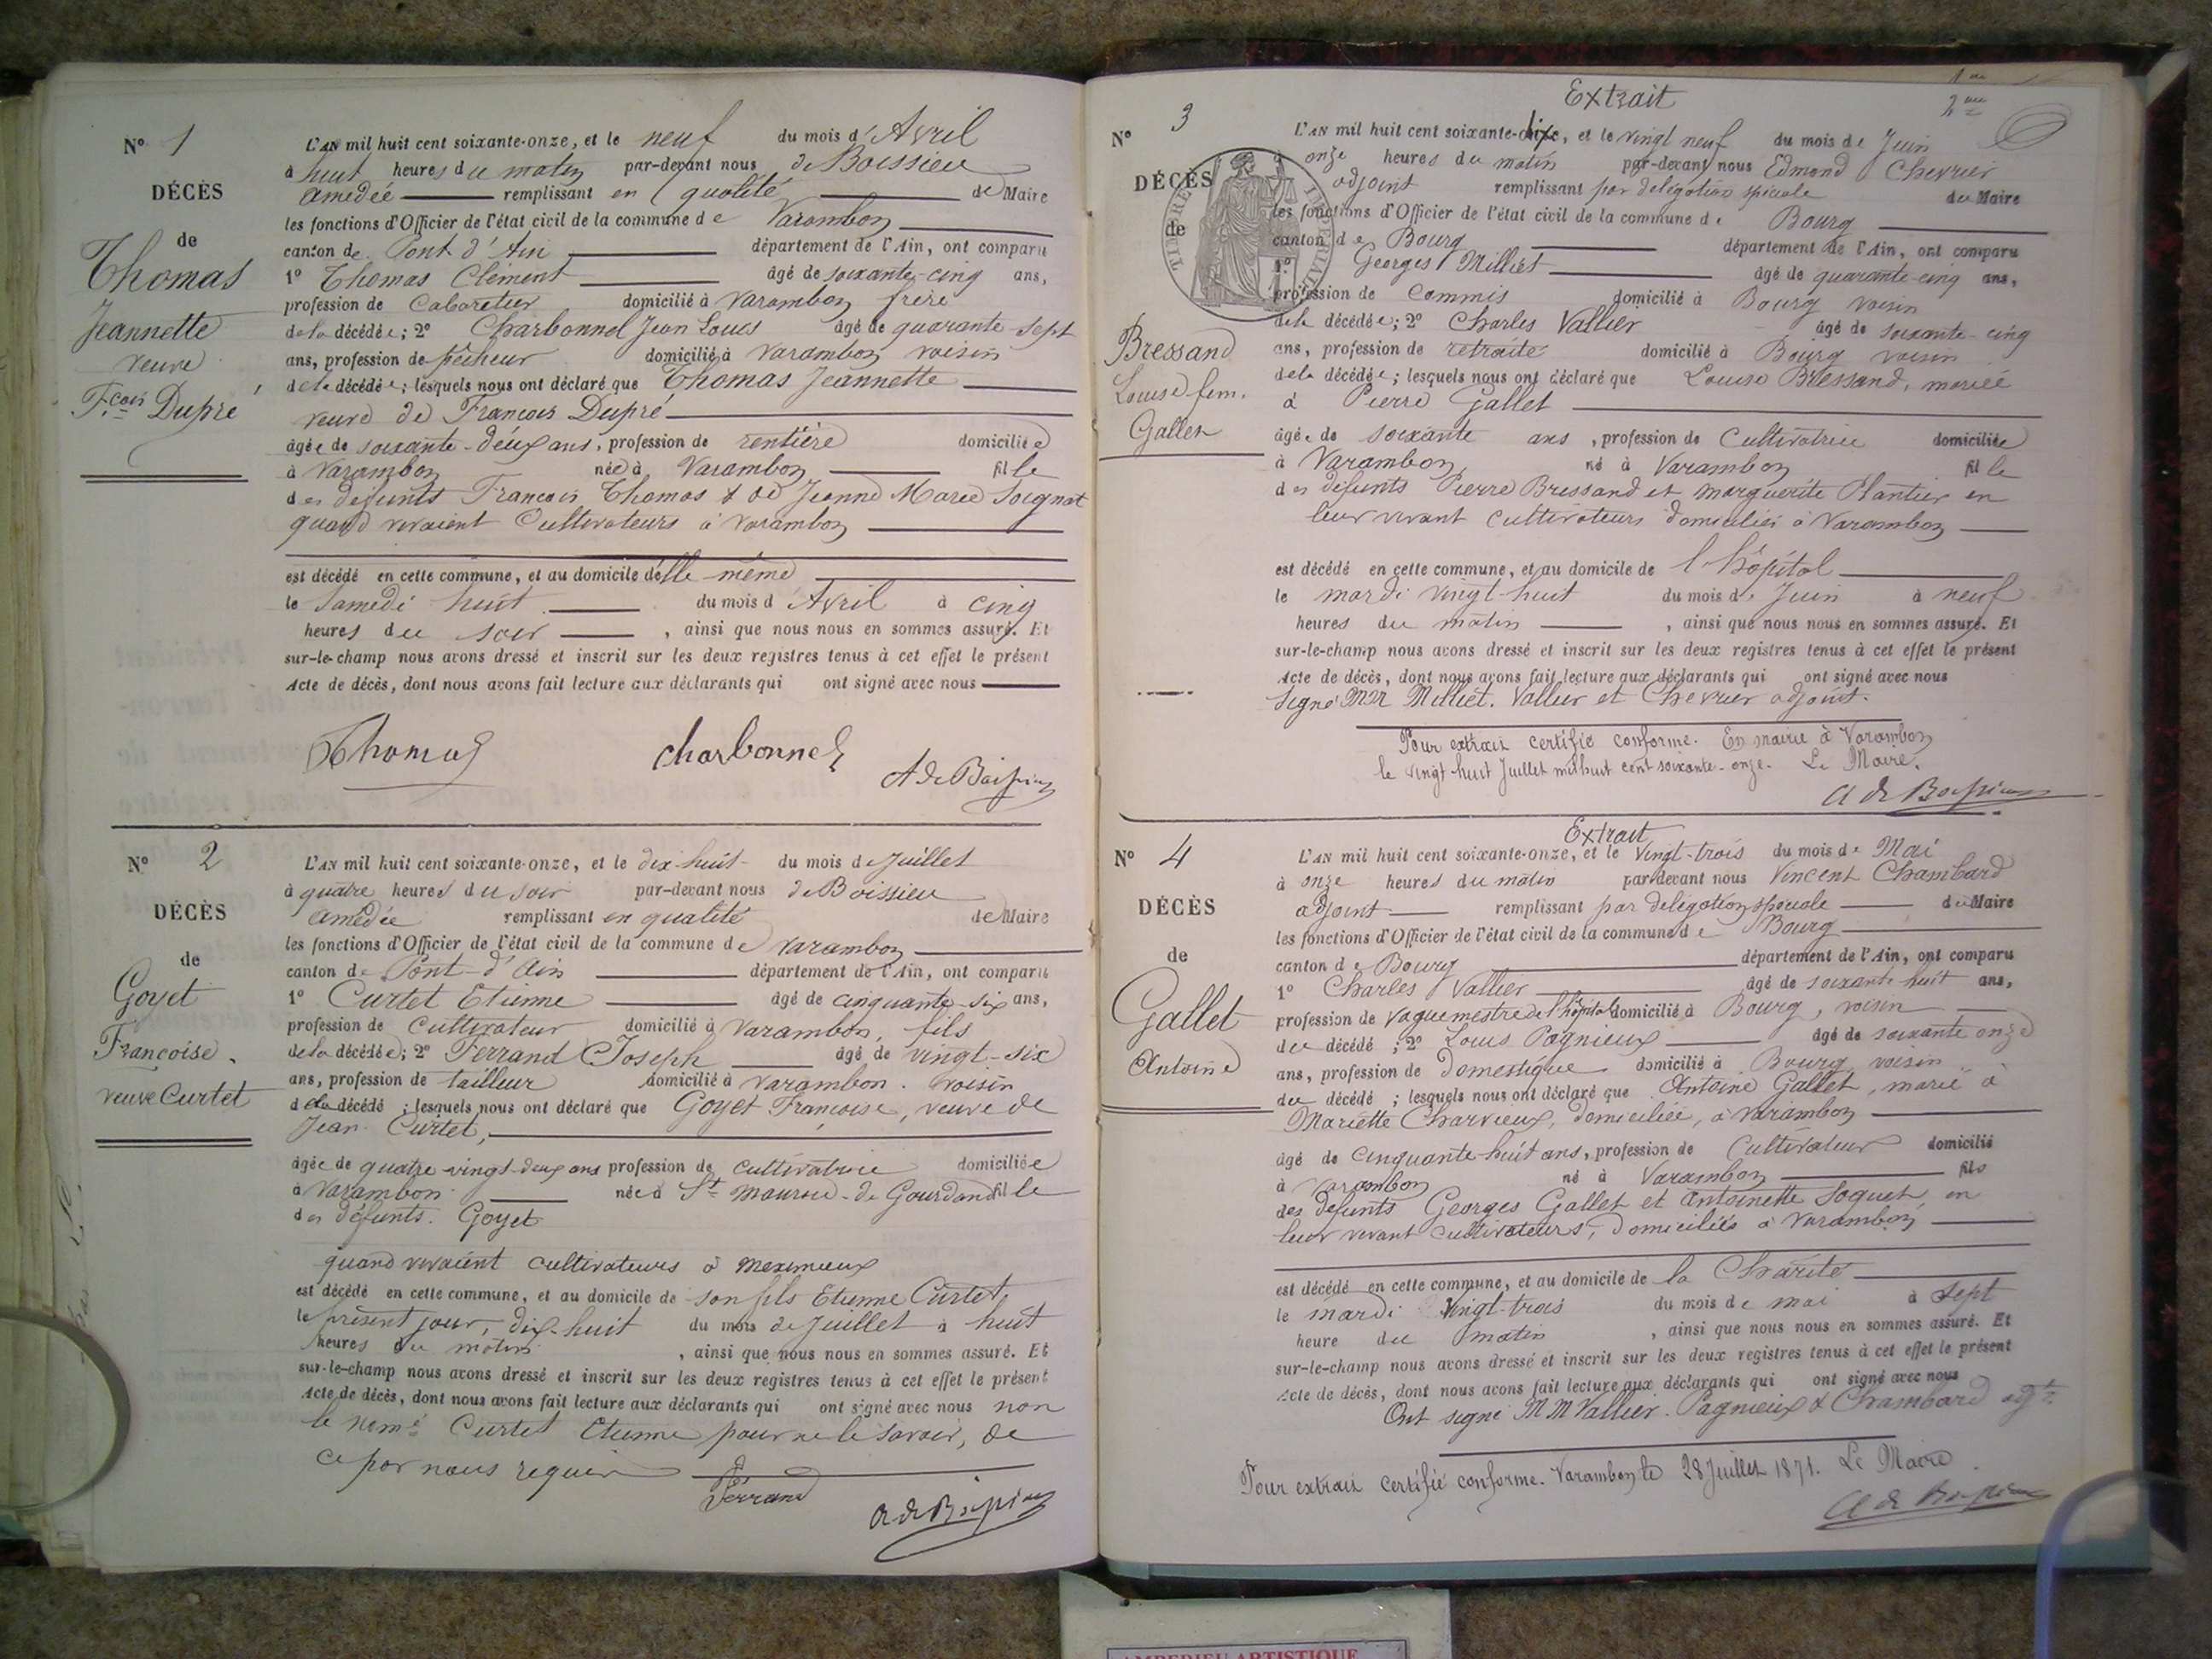 N° 1
DÉCÈS
de
Thomas
Jeannette
veuve
Fçois Dupré
L'AN mil huit cent soixante-onze, et le neuf du mois d'Avril
à huit heures du matin par-devant nous de Boissieu
Amédée remplissant en qualité de Maire
les fonctions d'Officier de l'état civil de la commune de Varambon
canton de Pont d'Ain département de l'Ain, ont comparu
1° Thomas Clément âgé de soixante-cinq ans,
profession de Cabaretier domicilié à Varambon frère
de la décédée; 2° Charbonnel Jean Louis âgé de quarante-sept
ans, profession de pêcheur domicilié à Varambon voisin
de la décédée; lesquels nous ont déclaré que Thomas Jeannette
veuve de François Dupré
âgée de soixante-deux ans, profession de rentière domiciliée
à Varambon née à Varambon fille
des défunts François Thomas & de Jeanne Marie Soignat
quand vivaient Cultivateurs à Varambon
est décédé en cette commune, et au domicile d'elle même
le Samedi huit du mois d'Avril à cinq
heures du soir, ainsi que nous nous en sommes assuré. Et
sur-le-champ nous avons dressé et inscrit sur les deux registres tenus à cet effet le présent
Acte de décès, dont nous avons fait lecture aux déclarants qui ont signé avec nous
Thomas Charbonnel A de Boissieu
N° 2
DÉCÈS
de
Goyet
Françoise.
veuve Curtet
L'AN mil huit cent soixante-onze, et le dix-huit du mois de Juillet
à quatre heures du soir par-devant nous de Boissieu
Amédée remplissant en qualité de Maire
les fonctions d'Officier de l'état civil de la commune de Varambon
canton de Pont-d'Ain département de l'Ain, ont comparu
1° Curtet Etienne âgé de cinquante-six ans,
profession de cultivateur domicilié à Varambon, fils
de la décédée; 2° Ferrand Joseph âgé de vingt-six
ans, profession de tailleur domicilié à Varambon. voisin
de la décédé; lesquels nous ont déclaré que Goyet Françoise, veuve de
Jean Curtet,
âgée de quatre-vingt-deux ans profession de cultivatrice domiciliée
à Varambon née à St Maurice-de Gourdan fille
des défunts. Goyet
quand vivaient cultivateurs à Meximieux
est décédé en cette commune, et au domicile de son fils Etienne Curtet,
le présent jour, dix-huit du mois de Juillet à huit
heures du matin, ainsi que nous nous en sommes assuré. Et
sur-le-champ nous avons dressé et inscrit sur les deux registres tenus à cet effet le présent
Acte de décès, dont nous avons fait lecture aux déclarants qui ont signé avec nous non
le nommé Curtet Etienne pour ne le savoir, de
ce par nous requis
Ferrand A de Boissieu
Extrait
2me
N° 3
DÉCÈS
de
TIMBRE IMPÉRIAL
Bressand
Louise fem.
Gallet
L'AN mil huit cent soixante-dix, et le vingt neuf du mois de Juin
à onze heures du matin par-devant nous Edmond Chevrier
adjoint remplissant par délégation spéciale du Maire
les fonctions d'Officier de l'état civil de la commune de Bourg
canton de Bourg département de l'Ain, ont comparu
1° Georges Milliet âgé de quarante-cinq ans,
profession de Commis domicilié à Bourg voisin
de la décédée; 2° Charles Vallier âgé de soixante-cinq
ans, profession de retraité domicilié à Bourg voisin
de la décédée; lesquels nous ont déclaré que Louise Bressand, mariée
à Pierre Gallet
âgée de soixante ans, profession de Cultivatrice domiciliée
à Varambon, né à Varambon fille
des défunts Pierre Bressand et Marguerite Plantier en
leur vivant cultivateurs domiciliés à Varambon
est décédé en cette commune, et au domicile de l'hôpital
le mardi vingt-huit du mois de Juin à neuf
heures du matin, ainsi que nous nous en sommes assuré. Et
sur-le-champ nous avons dressé et inscrit sur les deux registres tenus à cet effet le présent
Acte de décès, dont nous avons fait lecture aux déclarants qui ont signé avec nous
Signé MM Milliet. Vallier et Chevrier adjoint.
Pour extrait certifié conforme. En mairie à Varambon
le vingt huit Juillet mil huit cent soixante-onze. Le Maire.
A de Boissieu
Extrait
N° 4
DÉCÈS
de
Gallet
Antoine
L'AN mil huit cent soixante-onze, et le Vingt-trois du mois de Mai
à onze heures du matin par-devant nous Vincent Chambard
adjoint remplissant par délégation spéciale du Maire
les fonctions d'Officier de l'état civil de la commune de Bourg
canton de Bourg département de l'Ain, ont comparu
1° Charles Vallier âgé de soixante-huit ans,
profession de Vaguemestre de l'hôpital domicilié à Bourg, voisin
du décédé; 2° Louis Pagnieux âgé de soixante onze
ans, profession de Domestique domicilié à Bourg voisin
du décédé; lesquels nous ont déclaré que Antoine Gallet, marié à
Mariette Charvieux, domiciliée, à Varambon
âgé de cinquante-huit ans, profession de Cultivateur domicilié
à Varambon né à Varambon fils
des défunts Georges Gallet et Antoinette Soquet, en
leur vivant cultivateurs, domiciliés à Varambon,
est décédé en cette commune, et au domicile de la Charité
le mardi vingt-trois du mois de mai à sept
heure du matin, ainsi que nous nous en sommes assuré. Et
sur-le-champ nous avons dressé et inscrit sur les deux registres tenus à cet effet le présent
Acte de décès, dont nous avons fait lecture aux déclarants qui ont signé avec nous
Ont signé MM Vallier. Pagnieux & Chambard adjt
Pour extrait certifié conforme. Varambon le 28 Juillet 1871. Le Maire.
A de Boissieu
AMBERIEU ARTISTIQUE